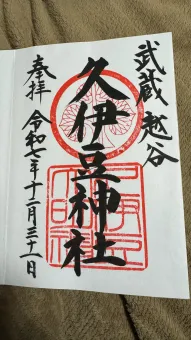 武蔵越谷
久伊豆神社
奉拝
令和七年十二月三十一日